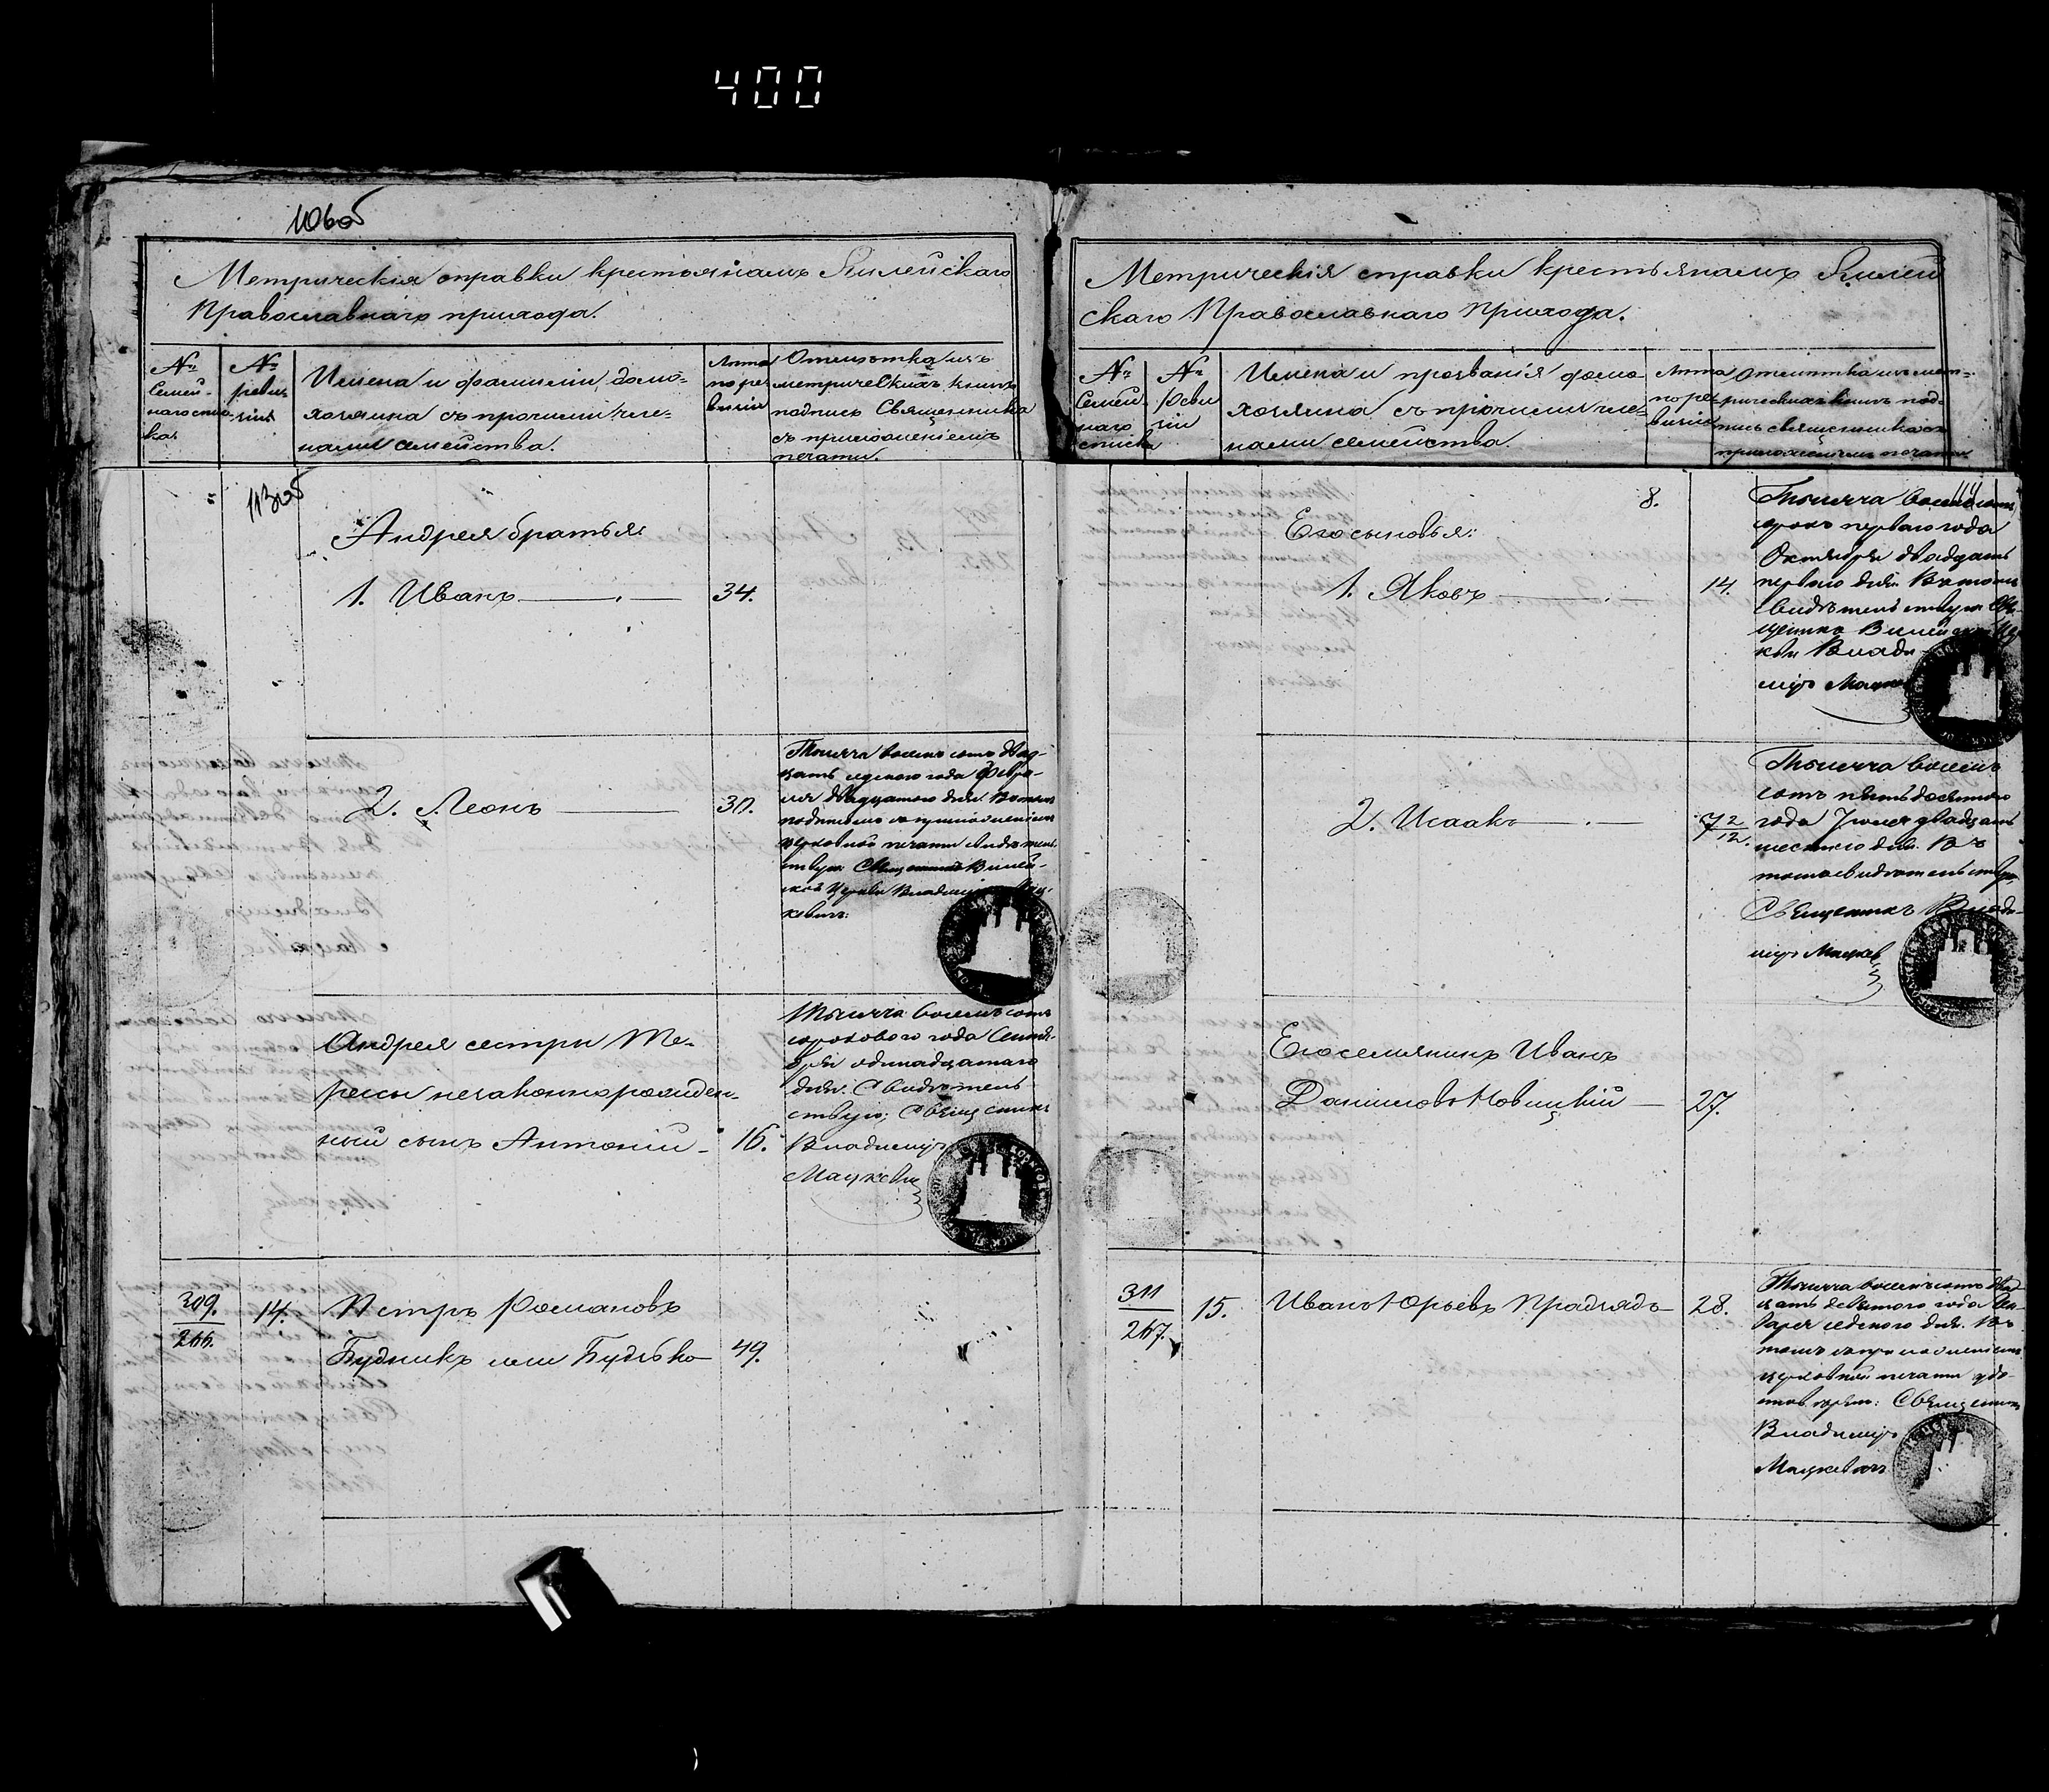 400
110об
Метрическія справки крестьянамъ Вилейскаго
Православнаго прихода.
№
Семей-
наго спис-
ка
№
реви-
зіи
Имена и фамиліи домо-
хозяина съ прочими чле-
нами семейства.
Лѣта
по ре
визіи
Отмѣтка изъ
метрическихъ книгъ
подпись Священника
съ приложеніемъ
печати.
113об
Андрея братья:
1. Иванъ 34.
2. Леонъ 30.
Тысяча восемь сотъ двад-
цать седмого года Февра-
ля двадцатого дня. В томъ
подписомъ съ приложеніемъ
церковной печати свидѣтель-
ствую Священникъ Вилей-
ской Церкви Владиміръ Мац-
кевичъ.
Андрея сестры Те-
рессы незаконнорожден-
ный сынъ Антоній 16.
Тысяча восемь сотъ
сорокового года Сентя-
бря одинадцатаго
дня. Свидѣтель-
ствую; Священникъ
Владиміръ
Мацкевич
309.
266.
14.
Петръ Романовъ
Будникъ или Будько 49.
Метрическія справки крестьянамъ Вилей
скаго Православнаго Прихода.
№
Семей
наго
списка
№
Реви
зіи
Имена и прозванія домо-
хозяина съ прочими чле-
нами семейства
Лѣта
по ре-
визіи
Отмѣтка изъ мет-
рическихъ книгъ под-
пись священника съ
приложеніемъ печати
8.
Его сыновья:
1. Яковъ 14.
Тысяча восемь сотъ
сорокъ перваго года
Октября двадцать
перваго дня. В томъ
свидѣтельствую Свя-
щенникъ Вилейской Цер
кви Влади-
міръ Мацкев
2. Исаакъ 7 2/12.
Тысяча восемь
сотъ пятьдесятого
года Іюля двадцать
шестого дня. Въ
томъ свидѣтельствую
Священникъ Влади-
міръ Мацкев
Егоселянинъ Иванъ
Даниловъ Новицкій 27.
311
267.
15.
Иванъ Юрьевъ Прадзядъ 28.
Тысяча восемьсотъ двад
цать девятого года Ян-
варя седмого дня. Въ
томъ съ приложеніемъ
церковной печати удо-
стовѣряю: Священникъ
Владиміръ
Мацкевичъ